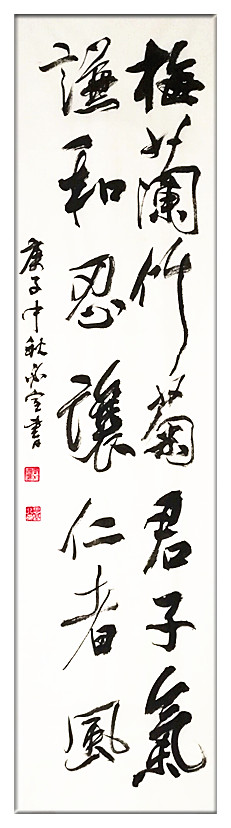 梅蘭竹菊君子氣
謙和忍讓仁者風
庚子中秋宏書